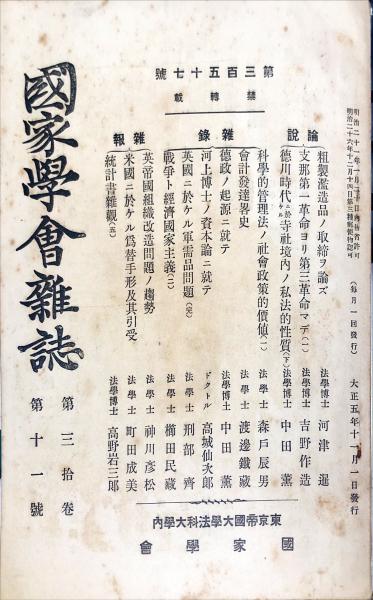 明治二十六年十二月十四日第三種郵便物認可
（每月一回發行）　大正五年十一月一日發行
第三百五十七號
禁轉載
論說
粗製濫造品ノ取締ヲ論ズ　法學博士　河津　暹
支那第一革命ヨリ第三革命マデ（二）　法學博士　吉野作造
德川時代ニ於ケル寺社境內ノ私法的性質（下）　法學博士　中田　薰
科學的管理法ノ社會政策的價値（一）　法學士　森戶辰男
會計發達畧史　法學士　渡邊鐵藏
雜錄
德政ノ起源ニ就テ　法學博士　中田　薰
河上博士ノ資本論ニ就テ　ドクトル　高城仙次郎
英國ニ於ケル軍需品問題（完）　法學士　刑部　齊
戰爭ト經濟國家主義（二）　法學士　櫛田民藏
雜報
英帝國組織改造問題ノ趨勢　法學士　神川彥松
米國ニ於ケル爲替手形及其引受　法學士　町田成美
統計書雜觀（五）　法學博士　高野岩三郎
東京帝國大學法科大學內
國家學會
國家學會雜誌
第三拾卷　第十一號